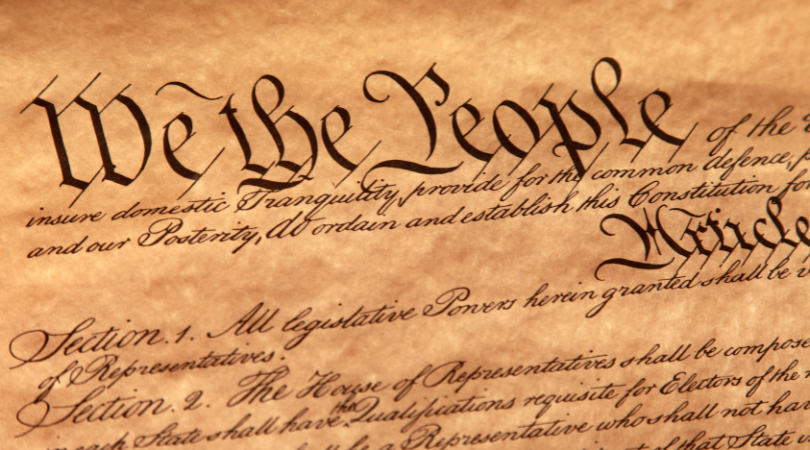 We the People of the
insure domestic Tranquility, provide for the common defence,
and our Posterity, do ordain and establish this Constitution for
Article
Section. 1. All legislative Powers herein granted shall be
of Representatives.
Section. 2. The House of Representatives shall be
in each State shall have the Qualifications requisite for Electors of the
shall be a Representative who shall not
of that State